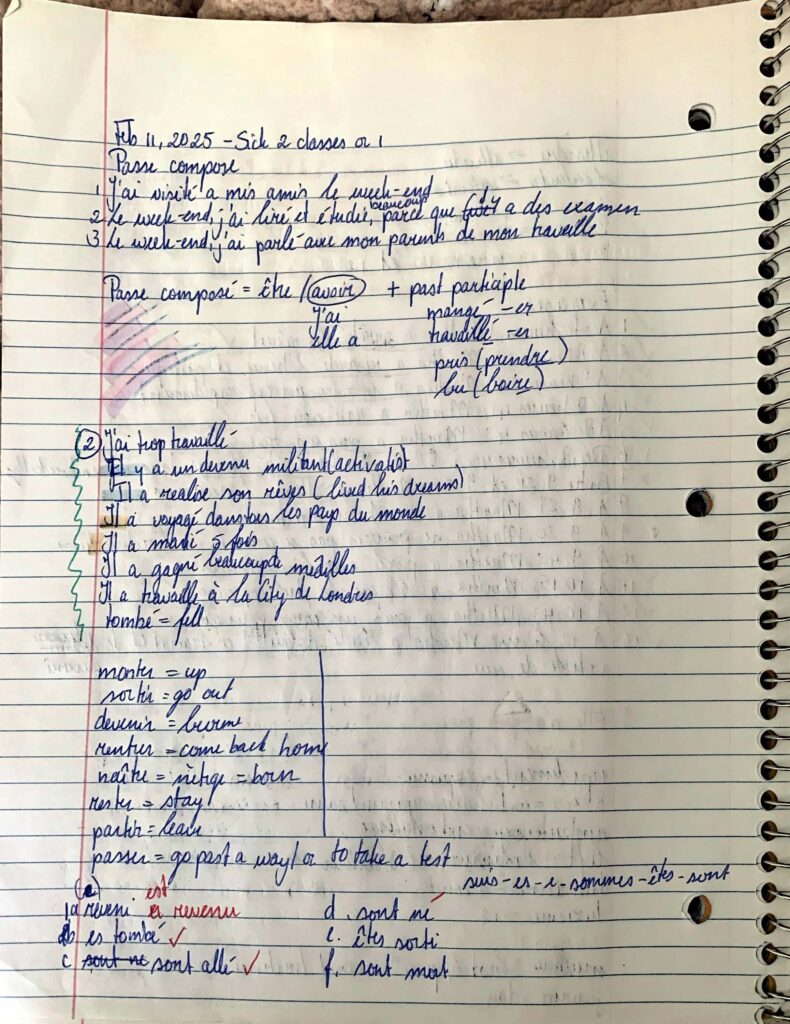 Feb 11, 2025 - Sick 2 classes or 1
Passe compose
1 J'ai visité a mis amis le week-end
2 Le week-end, j'ai liré et étudié, beaucoup parce que il y a des examen
3 Le week-end, j'ai parlé avec mon parents de mon travaille
Passe composé = être / avoir + past participle
J'ai mangé -er
elle a travaillé -er
pris (prendre)
bu (boire)
2 J'ai trop travaillé
Il y a un devenu militant (activatist)
Il a realise son rêves (lived his dreams)
Il a voyagé dans tous les pays du monde
Il a marié 5 fois
Il a gagné beaucoup de médilles
Il a travaille à la City de Londres
tombé = fell
monter = up
sortir = go out
devenir = become
rentrer = come back home
naître = = born
rester = stay
partir = leave
passer = go past a way / or to take a test
suis - es - e - sommes - êtes - sont
(e)
1a reveni est revenu
b es tombé ✓
c sont né sont allé ✓
d. sont né
e. êtes sorti
f. sont mort